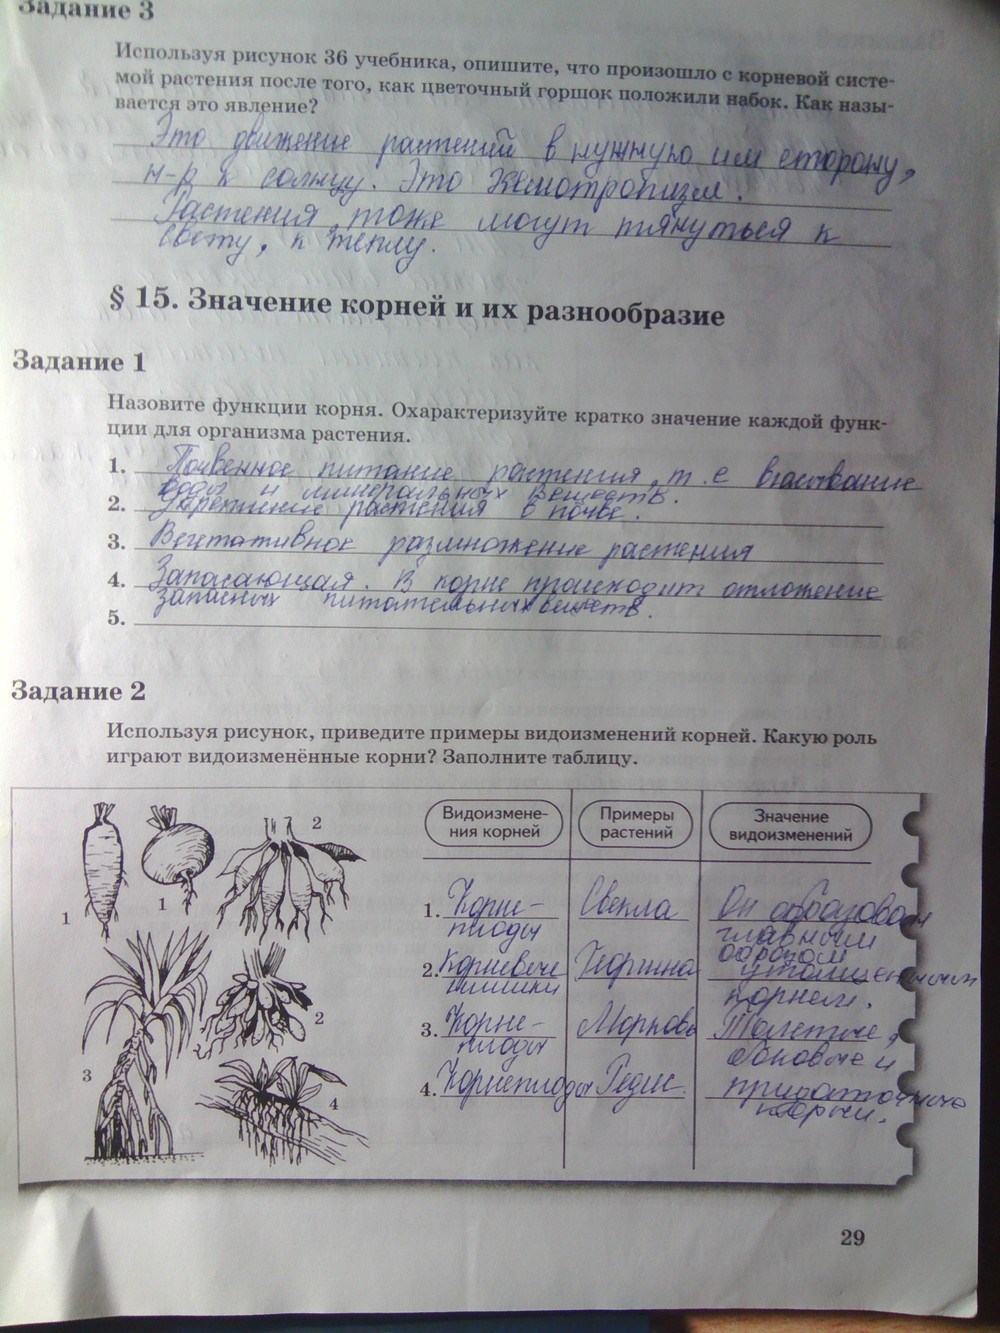 Задание 3
Используя рисунок 36 учебника, опишите, что произошло с корневой систе-
мой растения после того, как цветочный горшок положили набок. Как назы-
вается это явление?
Это движение растений в нужную им сторону,
н-р к солнцу. Это Хемотропизм.
Растения тоже могут тянуться к
свету, к теплу.
§ 15. Значение корней и их разнообразие
Задание 1
Назовите функции корня. Охарактеризуйте кратко значение каждой функ-
ции для организма растения.
1. Почвенное питание растения, т.е всасывание
воды и минеральных веществ.
2. Укрепление растения в почве.
3. Вегетативное размножение растения
4. Запасающая. В корне происходит отложение
запасных питательных веществ.
5.
Задание 2
Используя рисунок, приведите примеры видоизменений корней. Какую роль
играют видоизменённые корни? Заполните таблицу.
1
1
2
2
3
4
Видоизмене-
ния корней
Примеры
растений
Значение
видоизменений
1. Корне-
плоды
Свекла
Он образован
главным
образом
2.
шишки
Георгина
утолщенным
корнем.
3. Корне-
плоды
Морковь
Толстые,
боковые и
4. Корнеплоды
Редис.
придаточные
корни.
29